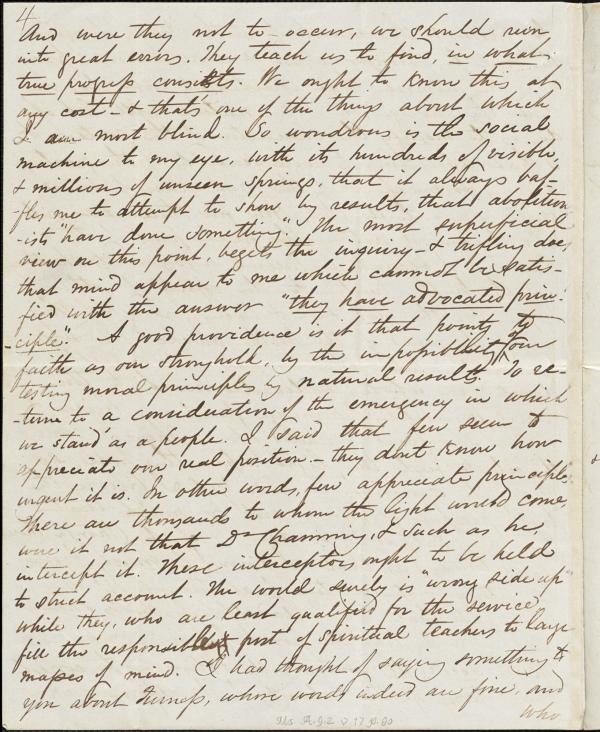 4
And were they not to occur, we should run
into great errors. They teach us to find, in what
true progress consists. We ought to know this at
any cost - & that's one of the things about which
I am most blind. So wondrous is the social
machine to my eye, with its hundreds of visible,
& millions of unseen springs, that it always baf-
-fles me to attempt to show by results, that abolition
-ists "have done something". The most superficial
view on this point, begets the inquiry - & trifling does
that mind appear to me which cannot be satis-
fied with the answer "they have advocated prin-
-ciple". A good providence is it that points to
faith as our stronghold, by the impossibility of our
testing moral principles by natural results. To re-
-turn to a consideration of the emergency in which
we stand as a people. I said that few seem to
appreciate our real position - they don't know how
urgent it is. In other words, few appreciate principle.
There are thousands to whom the light would come,
were it not that Dr Channing, & such as he,
intercept it. These interceptors ought to be held
to strict account. The world surely is "wrong side up"
while they, who are least qualified for the service,
fill the responsible post of spiritual teachers to large
masses of mind. I had thought of saying something to
you about whose words indeed are fine, and
who
Ms. A.9.2 v.17 p.80